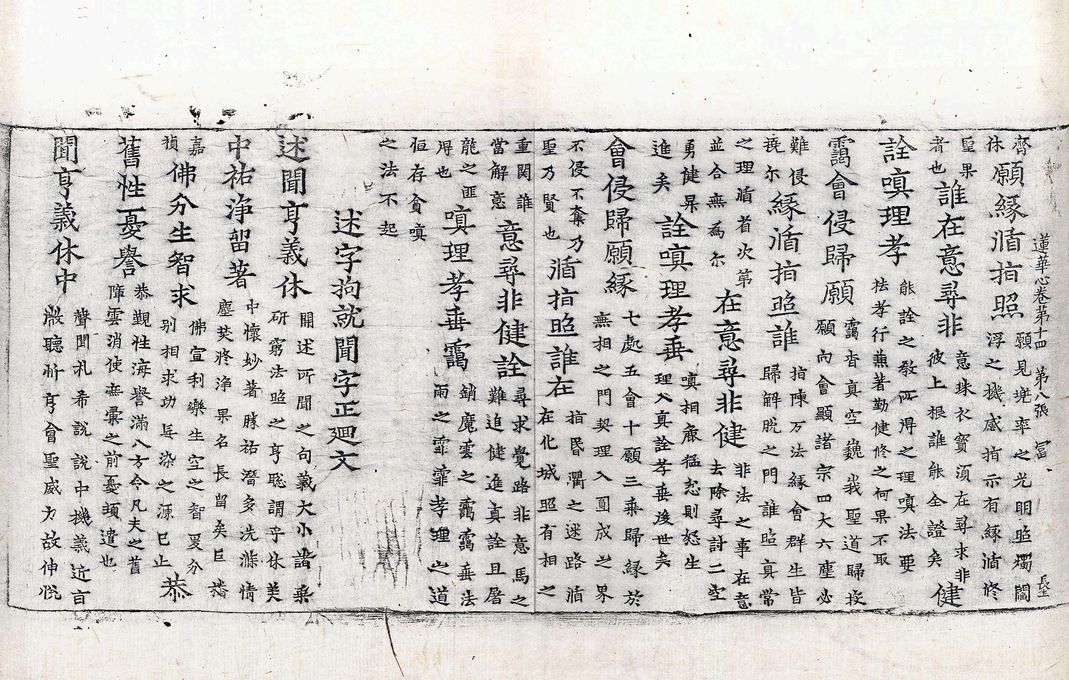 蓮華心卷第十四 第八張 冨
齊
休
願縁循指照
願見兜率之光明照燭閻
浮之機感指示有縁循修
聖果
者也
誰在意尋非
意珠衣寳須在尋求非
彼上根誰能全證矣
健
詮嗔理孝
能詮之敎所用之理嗔法要
祛孝行薫著勤健修之何果不取
靄會侵歸願
靄杳真空巍我聖道歸按
願向會顯諸宗四大六塵必
難侵
撓尓
縁循指照誰
指陳万法縁會群生皆
歸解脱之門誰照真常
之理循者次第
並合無爲尓
在意尋非健
非法之事在意
去除尋計二空
勇健果
進矣
詮嗔理孝垂
嗔相麁猛忿則怒生
理入真詮孝垂後世矣
會侵歸願縁
七處五會十願三乗歸縁於
無相之門契理入圓成之界
不侵不棄乃
聖乃賢也
循指照誰在
指昬濁之迷路循
在化城照有相之
重関誰
當解意
意尋非健詮
尋求覺路非意馬之
難追健進真詮且屠
龍之匪
淂也
嗔理孝垂靄
銷魔雲之靄靄垂法
雨之霏霏孝理之道
恒存貪嗔
之法不起
述字拘就聞字正廻文
述聞亨義休
開述所聞之句義大小諸乗
研窮法照之亨聡謂乎休美
中祐浄留著
中懷妙著勝祐潛多洗滌情
塵焚將浄果名長留矣巨播
嘉
禎
佛分生智求
佛宣利樂生空之智爰分
别相求功長染之源已止
恭
舊性憂譽
恭覲性海譽滿八方令凡夫之舊
障雲消使無量之前憂頓遣也
聞亨義休中
聲聞札希説説中機義近言
殷聽忻亨會聖威力故伸悦